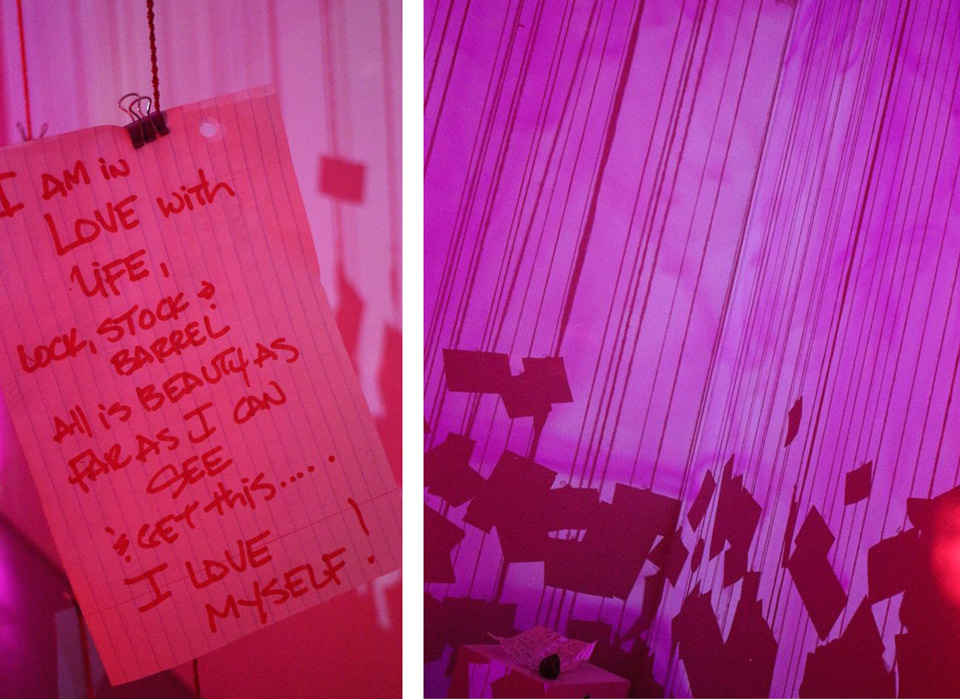 I AM in
LOVE with
LiFE,
LOCK, STOCK &
BARREL
All is BEAUTY AS
FAR AS I CAN
SEE
& GET this.....
I LOVE
MYSELF!